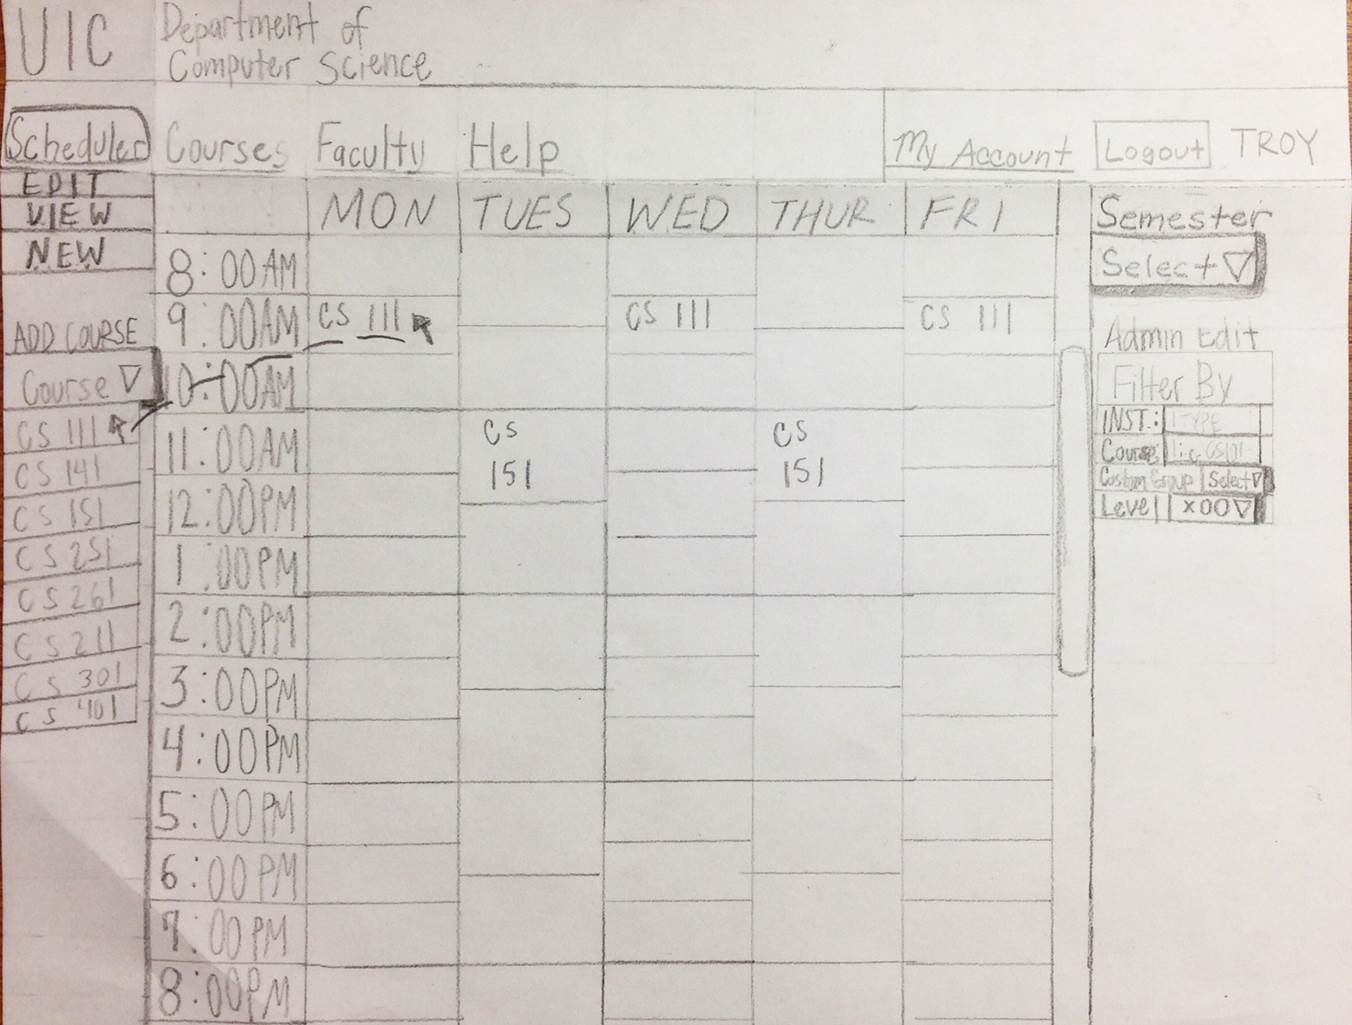 UIC
Department of
Computer Science
Scheduler Courses Faculty Help My Account Logout TROY
EDIT
VIEW
NEW
ADD COURSE
Course
CS 111
CS 141
CS 151
CS 251
CS 261
CS 211
CS 301
CS 401
MON TUES WED THUR FRI
8:00AM
9:00AM CS 111 CS 111 CS 111
10:00AM
11:00AM CS CS
151 151
12:00PM
1:00PM
2:00PM
3:00PM
4:00PM
5:00PM
6:00PM
7:00PM
8:00PM
Semester
Select
Admin Edit
Filter By
INST.: TYPE
Course:
Custom Group Select
Level X00